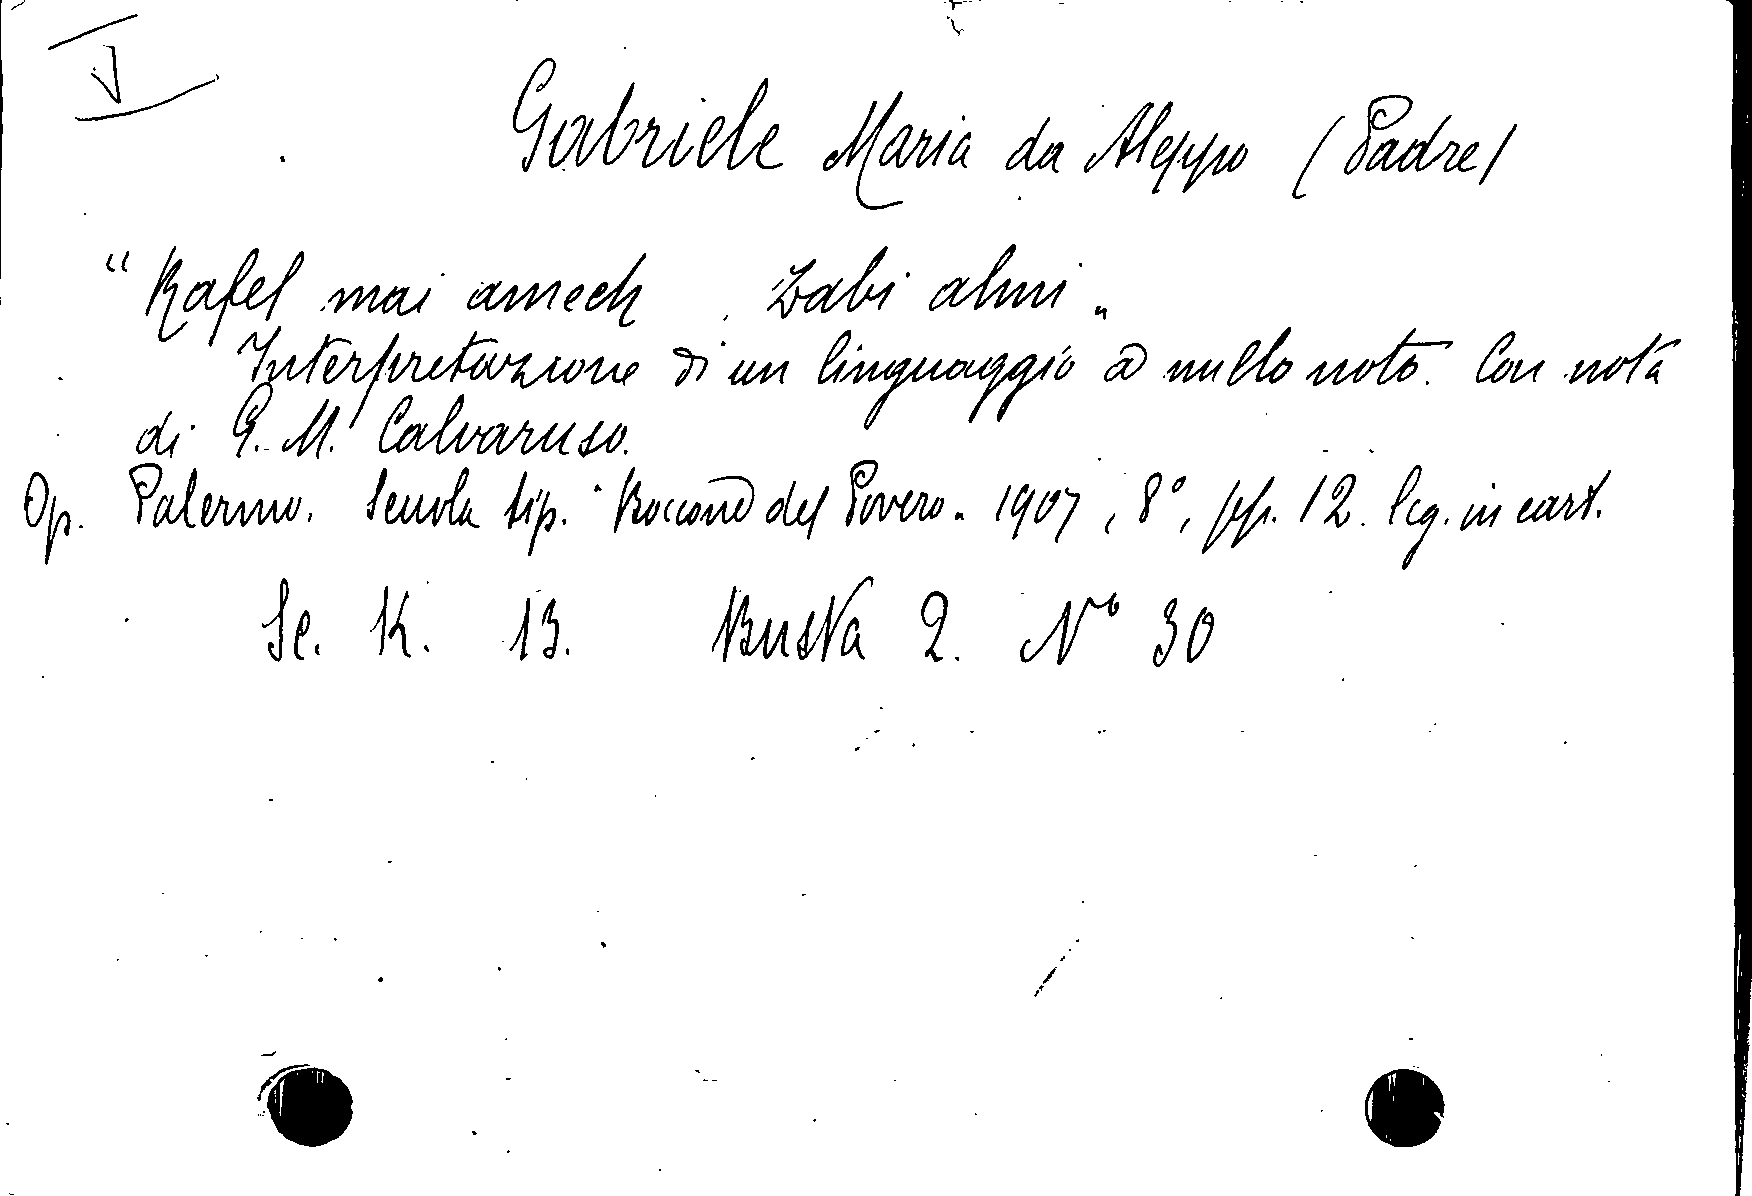 V
Gabriele Maria da Aleppo (Padre)
“Rafel mai amech zabi almi„
Interpretazione di un linguaggio a nullo noto. Con nota
di G. M. Calvaruso.
Op. Palermo. Scuola tip. "Boccone del Povero„ 1907, 8°, pp. 12. leg. in cart.
Sc. K. 13. Busta 2. N° 30